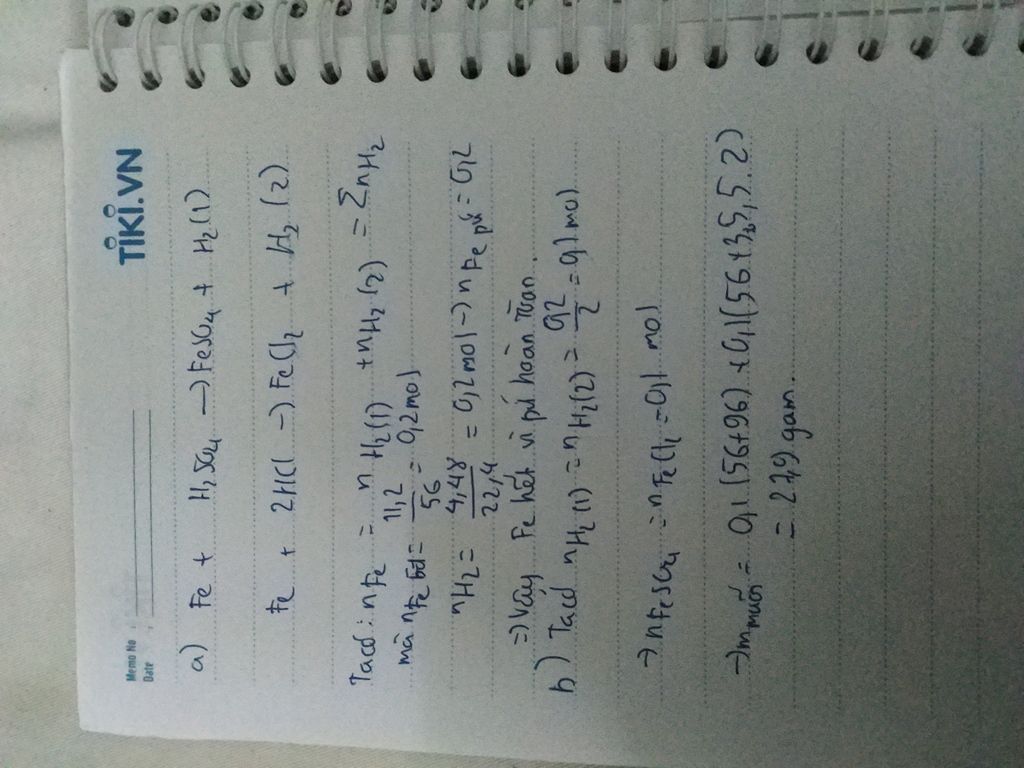 TIKI.VN
Memo No
Date
a) Fe + H₂SO₄ → FeSO₄ + H₂ (1)
Fe + 2HCl → FeCl₂ + H₂ (2)
Ta có: nFe = nH₂(1) + nH₂(2) = ΣnH₂
mà nFe bđ = 11,2/56 = 0,2 mol
nH₂ = 4,48/22,4 = 0,2 mol → nFe pứ = 0,2
=> Vậy Fe hết vì pứ hoàn toàn.
b) Ta có nH₂(1) = nH₂(2) = 0,2/2 = 0,1 mol
→ nFeSO₄ = nFeCl₂ = 0,1 mol
→ m muối = 0,1(56+96) + 0,1(56+35,5.2)
= 27,9 gam.